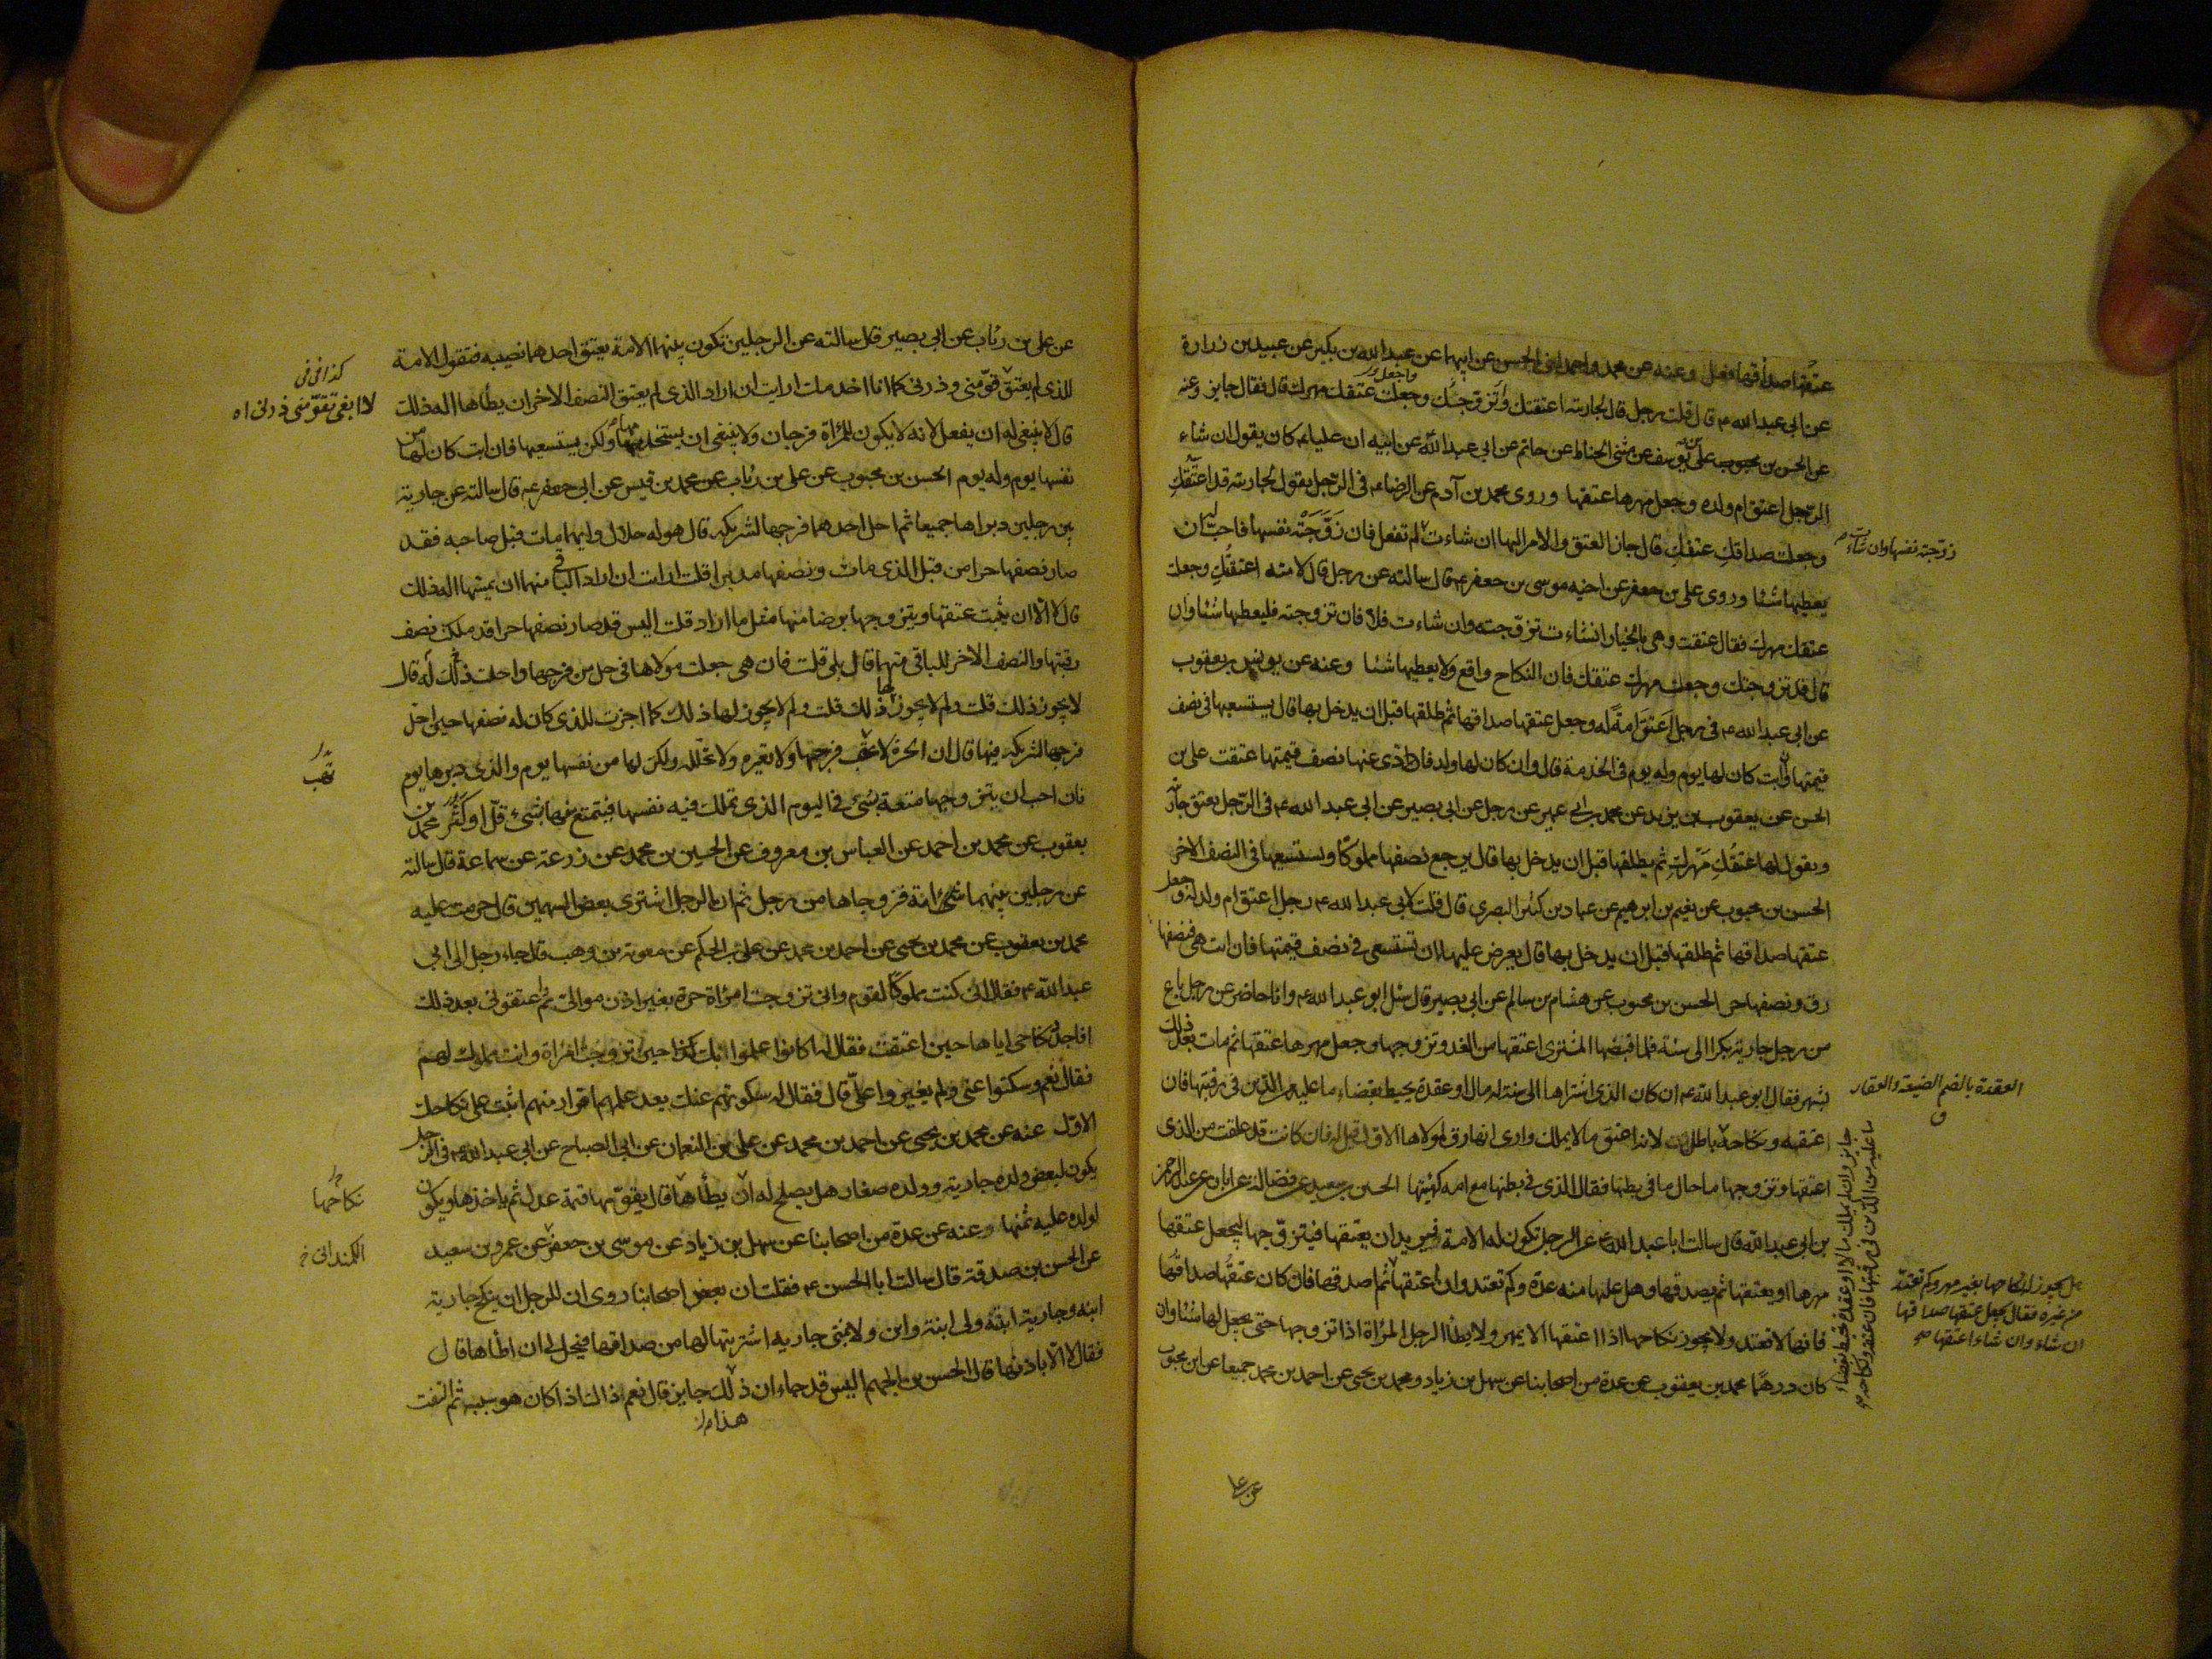 عتقها صداقها فعل وعنه عن محمد واحمد ابنى الحسن عن ابيهما عن عبد الله بن بكير عن عبيد بن زرارة
عن ابى عبد الله ع قال قلت رجل قال لجاريته اعتقتك واتزوجك وجعلت عتقك مهرك قال فقال جايز وعنه
عن الحسن بن على بن يوسف عن مثنى الحناط عن حاتم عن ابى عبد الله عن ابيه ان عليا ع كان يقول ان شاء
الرجل اعتق ام ولده وجعل مهرها عتقها وروى محمد بن آدم عن الرضا ع فى الرجل يقول لجاريته قد اعتقتك
وجعلت صداقك عتقك قال جاز العتق والامر اليها ان شاءت لم تفعل فان زوجته نفسها فاحب له ان
زوجته نفسها وان شاءت
يعطيها شيئا وروى على بن جعفر عن اخيه موسى بن جعفر ع قال سالته عن رجل قال لامته اعتقتك وجعلت
عتقك مهرك فقال عتقت وهى بالخيار ان شاءت تزوجته وان شاءت فلا فان تزوجته فليعطها شيئا وان
قال قد تزوجتك وجعلت مهرك عتقك فان النكاح واقع ولا يعطيها شيئا وعنه عن يونس بن يعقوب
عن ابى عبد الله ع فى رجل اعتق امة له وجعل عتقها صداقها ثم طلقها قبل ان يدخل بها قال يستسعيها فى نصف
قيمتها فان ابت كان لها يوم وله يوم فى الخدمة قال وان كان لها ولد فان ادى عنها نصف قيمتها عتقت على بن
الحسن عن يعقوب بن يزيد عن محمد بن ابى عمير عن رجل عن ابى بصير عن ابى عبد الله ع فى الرجل يعتق جاريته
ويقول لها عتقك مهرك ثم يطلقها قبل ان يدخل بها قال يرجع نصفها مملوكا ويستسعيها فى النصف الاخر
الحسن بن محبوب عن نعيم بن ابرهيم عن عباد بن كثير البصرى قال قلت لابى عبد الله ع رجل اعتق ام ولد له وجعل
عتقها صداقها ثم طلقها قبل ان يدخل بها قال يعرض عليها ان تستسعى فى نصف قيمتها فان ابت هى فنصفها
رق ونصفها حر الحسن بن محبوب عن هشام بن سالم عن ابى بصير قال سئل ابو عبد الله ع وانا حاضر عن رجل باع
من رجل جارية بكرا الى سنة فلما قبضها المشترى اعتقها من الغد وتزوجها وجعل مهرها عتقها ثم مات بعد ذلك
بشهر فقال ابو عبد الله ع ان كان الذى اشتراها الى سنة له مال او عقدة يحيط بقضاء ما عليه من الدين فى رقبتها فان
العقدة بالضم الضيعة والعقار
ق
عتقه ونكاحه باطل لانه اعتق ما لا يملك وارى انها رق لمولاها الاول قيل له فان كانت قد علقت من الذى
اعتقها وتزوجها ما حال ما فى بطنها فقال الذى فى بطنها مع امه كهيئتها الحسين بن سعيد عن فضالة عن ابان عن عبد الرحمن
بن ابى عبد الله قال سالت ابا عبد الله ع عن الرجل تكون له الامة فيريد ان يعتقها فيتزوجها ايجعل عتقها
مهرها او يعتقها ثم يصدقها وهل عليها منه عدة وكم تعتد وان اعتقها ثم صدقها فان كان عتقها صداقها
هل يجوز له نكاحها بغير مهر وكم تعتد
من غيره فقال يجعل عتقها صداقها
ان شاء وان شاء اعتقها
فانها لا تعتد ولا يجوز نكاحها اذا اعتقها الا بمهر ولا يطأ الرجل المراة اذا تزوجها حتى يجعل لها شيئا وان
كان درهما محمد بن يعقوب عن عدة من اصحابنا عن سهل بن زياد ومحمد بن يحيى عن احمد بن محمد جميعا عن ابن محبوب
جايز وان لم يملك مالا او عقدة تحيط بقضاء
ما عليه من الدين فى رقبتها فان عتقه ونكاحه
عن على
عن على بن رئاب عن ابى بصير قال سالته عن الرجلين تكون بينهما الامة يعتق احدهما نصيبه فتقول الامة
للذى لم يعتق قومنى وذرنى كما انا اخدمك ارايت ان اراد الذى لم يعتق النصف الاخر ان يطأها اله ذلك
لا ابغى تقومنى ذرنى اه
قال لا ينبغى له ان يفعل لانه لا يكون للمراة فرجان ولا ينبغى ان يستخدمها ولكن يستسعيها فان ابت كان لها من
نفسها يوم وله يوم الحسن بن محبوب عن على بن رئاب عن محمد بن قيس عن ابى جعفر ع قال سالته عن جارية
بين رجلين دبراها جميعا ثم احل احدهما فرجها لشريكه قال هو له حلال وايهما مات قبل صاحبه فقد
صار نصفها حرا من قبل الذى مات ونصفها مدبرا قلت ارايت ان اراد الباقى منهما ان يمسها اله ذلك
قال لا الا ان يثبت عتقها ويتزوجها برضا منها مثل ما اراد قلت اليس قد صار نصفها حرا قد ملكت نصف
رقبتها والنصف الاخر للباقى منهما قال بلى قلت فان هى جعلت مولاها فى حل من فرجها واحلت ذلك له قال
لا يجوز ذلك قلت ولم لا يجوز ذلك قلت ولم لا يجوز لها ذلك كما اجزت للذى كان له نصفها حين احل
فرجها لشريكه فيها قال ان الحرة لا تهب فرجها ولا تعيره ولا تحلله ولكن لها من نفسها يوم والذى دبرها يوم
تهب
فان احب ان يتزوجها متعة بشئ فى اليوم الذى تملك فيه نفسها فيتمتع منها بشئ قل او كثر محمد بن
يعقوب عن محمد بن احمد عن العباس بن معروف عن الحسين بن محمد عن زرعة عن سماعة قال سالته
عن رجلين بينهما امة فزوجاها من رجل ثم ان الرجل اشترى بعض السهمين قال حرمت عليه
محمد بن يعقوب عن محمد بن يحيى عن احمد بن محمد عن على بن الحكم عن معوية بن وهب قال جاء رجل الى ابى
عبد الله ع فقال انى كنت مملوكا لقوم وانى تزوجت امراة حرة بغير اذن موالى ثم اعتقونى بعد ذلك
افاجدد نكاحى اياها حين اعتقت فقال له اكانوا علموا انك تزوجت امراة وانت مملوك لهم
فقال نعم وسكتوا عنى ولم يغيروا على قال فقال له سكوتهم عنك بعد علمهم اقرار منهم اثبت على نكاحك
الاول عنه عن محمد بن يحيى عن احمد بن محمد عن على بن النعمان عن ابى الصباح عن ابى عبد الله ع فى الرجل
يكون لبعض ولده جارية وولده صغار هل يصلح له ان يطأها قال يقومها قيمة عدل ثم ياخذها ويكون
نكاحها
لولده عليه ثمنها وعنه عن عدة من اصحابنا عن سهل بن زياد عن موسى بن جعفر عن عمرو بن سعيد
عن الحسن بن صدقة قال سالت ابا الحسن ع فقلت ان بعض اصحابنا روى ان للرجل ان ينكح جارية
ابنه وجارية ابنته ولى ابنة وابن ولابنتى جاريه اشتريتها لها من صداقها فيحل لى ان اطأها قال
فقال لا الا باذنها قال الحسن بن الجهم اليس قد جاء ان ذلك جايز قال نعم ذاك اذا كان هو سببه ثم التفت